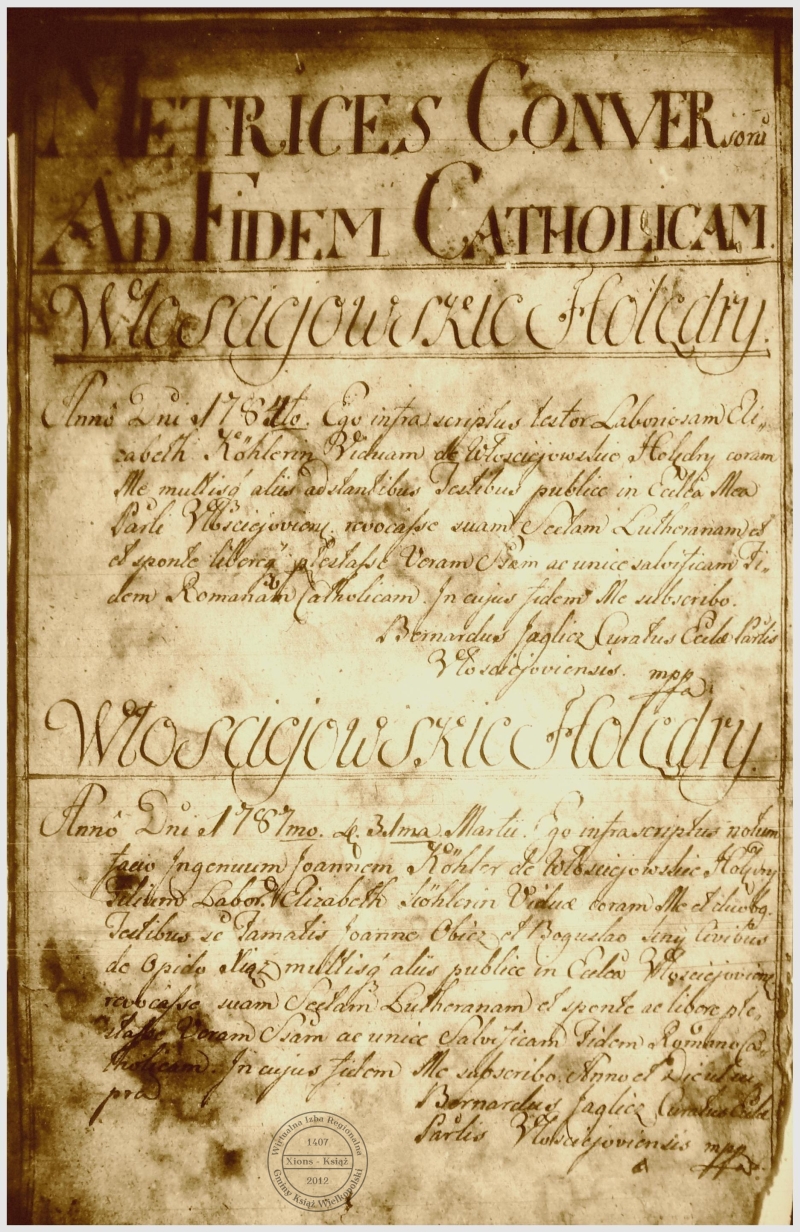 METRICES CONVERsorũ
AD FIDEM CATHOLICAM.
Włoscigowskie Holędry.
Annô Dni 1784to. Ego infra scriptus testor Laboriosam Eli„
zabeth Köhlerin Viduam de Włosciejowskie Holędry coram
Me multisq́ aliis adstantibus Testibus publice in Ecclea Mea
Parli Włosciejovien. revocasse suam Sectam Lutheranam et
et sponte libereq́ ptestasse Veram Ssam ac unice salvificam Fi„
dem Romanam Catholicam. In cujus fidem Me subscribo.
Bernardus Jaglicz Curatus Eccla Parlis
Włosciejoviensis. mpp
Włoscigowskie Holędry.
Annô Dni 1787mo. d. 31ma Martii. Ego infrascriptus notum
facio Ingenuum Joannem Köhler de Włosciejowskie Holędry
Filium Labor. Elizabeth Köhlerin Viduæ coram Me et duobq.
Testibus se Famatis Joanne Obicz et Boguslao Civibus
de Opido Xiąz multisq́ aliis publice in Ecclea Włosciejovien
revocasse suam Sectam Lutheranam et sponte ac libere pte„
stasse Veram Ssam ac unice Salvificam Fidem Romano Ca„
tholicam. In cujus fidem Me subscribo. Anno et Die ut su
pra
Bernardus Jaglicz Curatus Eccla
Parlis Włosciejoviensis mpp
Wirtualna Izba Regionalna
1407
Xions - Książ
2012
Gminy Książ Wielkopolski